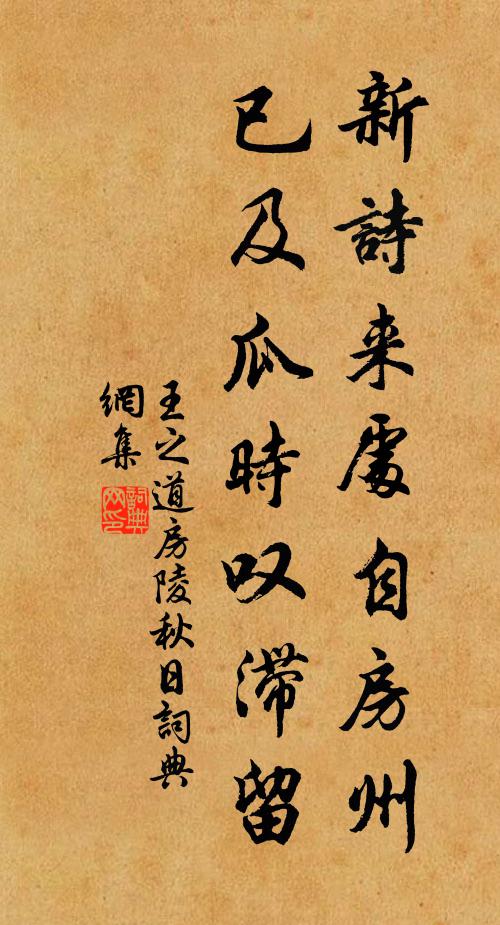 新詩来處自房州
已及瓜時叹滯留
王之道房陵秋日詞典
網集
詞典
网印